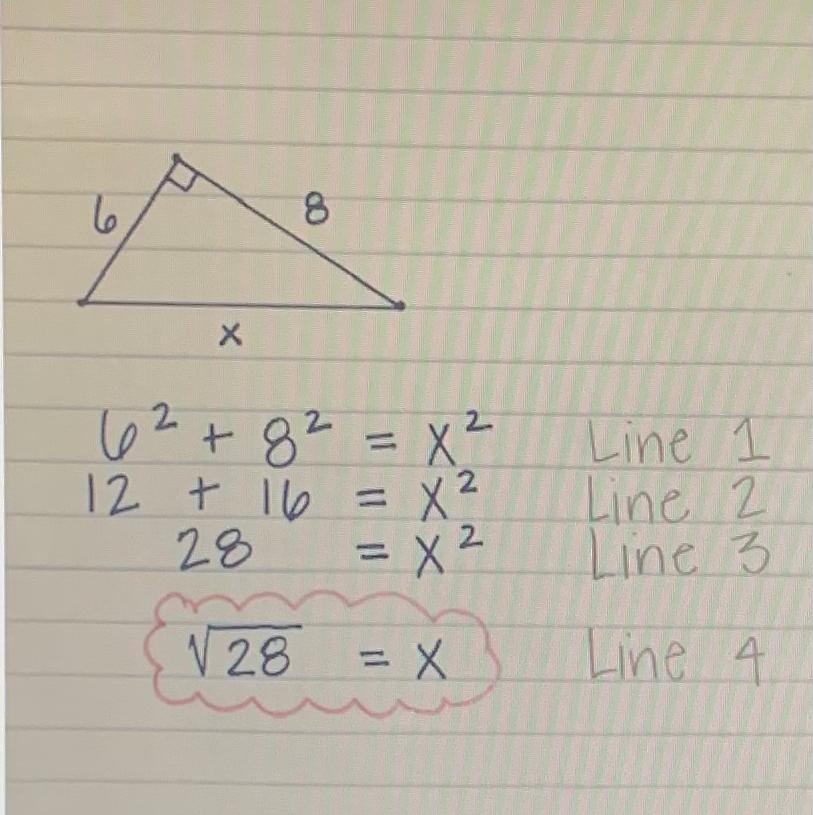 6 8
x
6² + 8² = x² Line 1
12 + 16 = x² Line 2
28 = x² Line 3
√28 = x Line 4